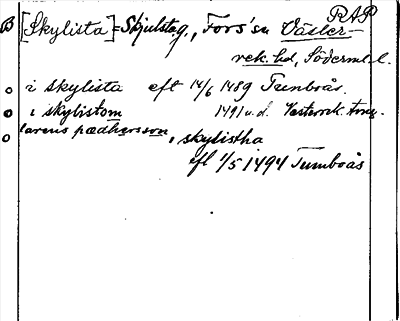 RAP
B [Skylista] = Skjulsta g., Fors' sn Väster-
rek. hd, Söderml. l.
o i skylista eft 14/6 1489 Tunboås.
o i skylistom 1491 u.d. Vesterrek.
o larens pædhersson, skylistha
eft 1/5 1494 Tumboås